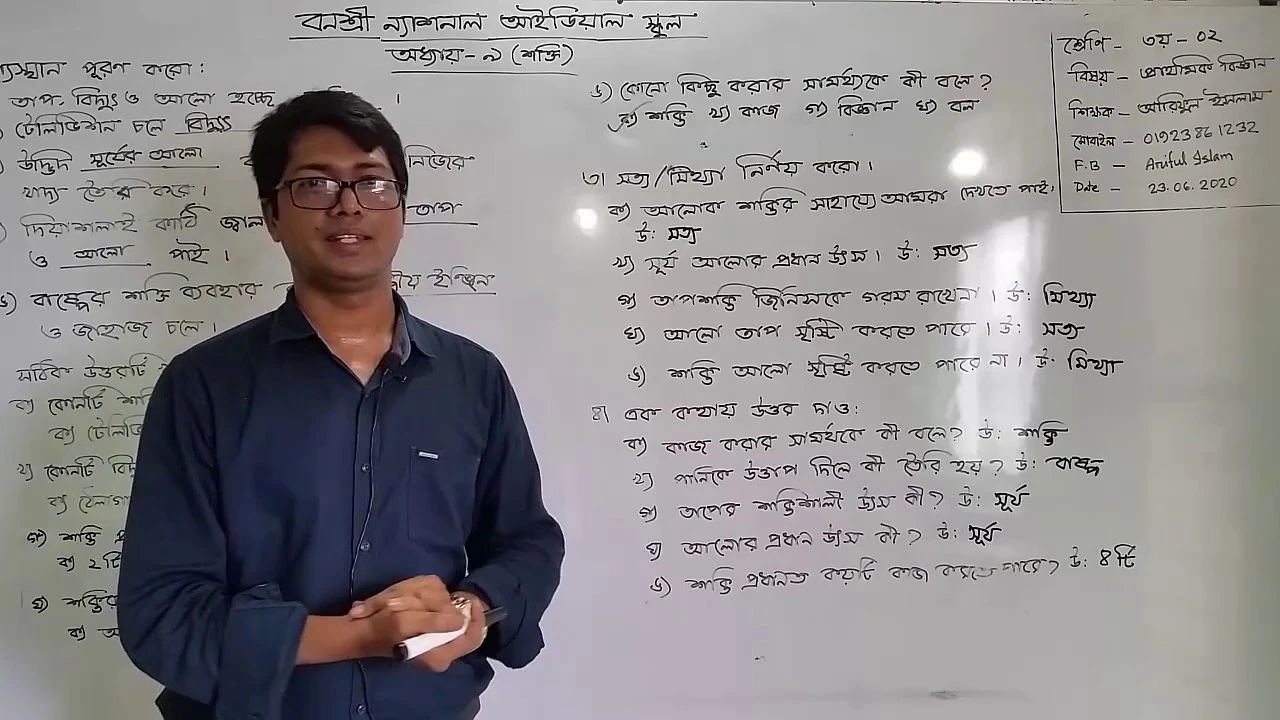 বনশ্রী ন্যাশনাল আইডিয়াল স্কুল
অধ্যায় - ৯ (শক্তি)
পূরণ করো:
তাপ, বিদ্যুৎ ও আলো হচ্ছে
টেলিভিশন চলে বিদ্যুৎ
উদ্ভিদ সূর্যের আলো নিজের
খাদ্য তৈরি করে।
দিয়াশলাই কাঠি জ্বাল তাপ
ও আলো পাই।
ঙ) বাষ্পের শক্তি ব্যবহার ইঞ্জিন
ও জাহাজ চলে।
সঠিক উত্তরটি
ক) কোনটি
ক) টেলিভি
খ) কোনটি
গ) শক্তি
ক) ২টি
ঘ) শক্তির
ক)
ঙ) কোনো কিছু করার সামর্থ্যকে কী বলে?
ক) শক্তি খ) কাজ গ) বিজ্ঞান ঘ) বল
৩। সত্য/মিথ্যা নির্ণয় করো।
ক) আলোক শক্তির সাহায্যে আমরা দেখতে পাই।
উ: সত্য
খ) সূর্য আলোর প্রধান উৎস। উ: সত্য
গ) তাপশক্তি জিনিসকে গরম রাখেনা। উ: মিথ্যা
ঘ) আলো তাপ সৃষ্টি করতে পারে। উ: সত্য
ঙ) শক্তি আলো সৃষ্টি করতে পারে না। উ: মিথ্যা
৪। এক কথায় উত্তর দাও:
ক) কাজ করার সামর্থকে কী বলে? উ: শক্তি
খ) পানিকে উত্তাপ দিলে কী তৈরি হয়? উ: বাষ্প
গ) তাপের শক্তিশালী উৎস কী? উ: সূর্য
ঘ) আলোর প্রধান উৎস কী? উ: সূর্য
ঙ) শক্তি প্রধানত কয়টি কাজ করতে পারে? উ: ৪টি
শ্রেণি - ৩য় - ০২
বিষয় - প্রাথমিক বিজ্ঞান
শিক্ষক - আরিফুল ইসলাম
মোবাইল - 01923861232
F.B - Ariful Islam
Date - 23.06.2020